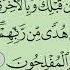 مِن قَبْلِكَ وَبِالْآخِرَةِ
هُدًى مِّن رَّبِّهِمْ
الْمُفْلِحُونَ